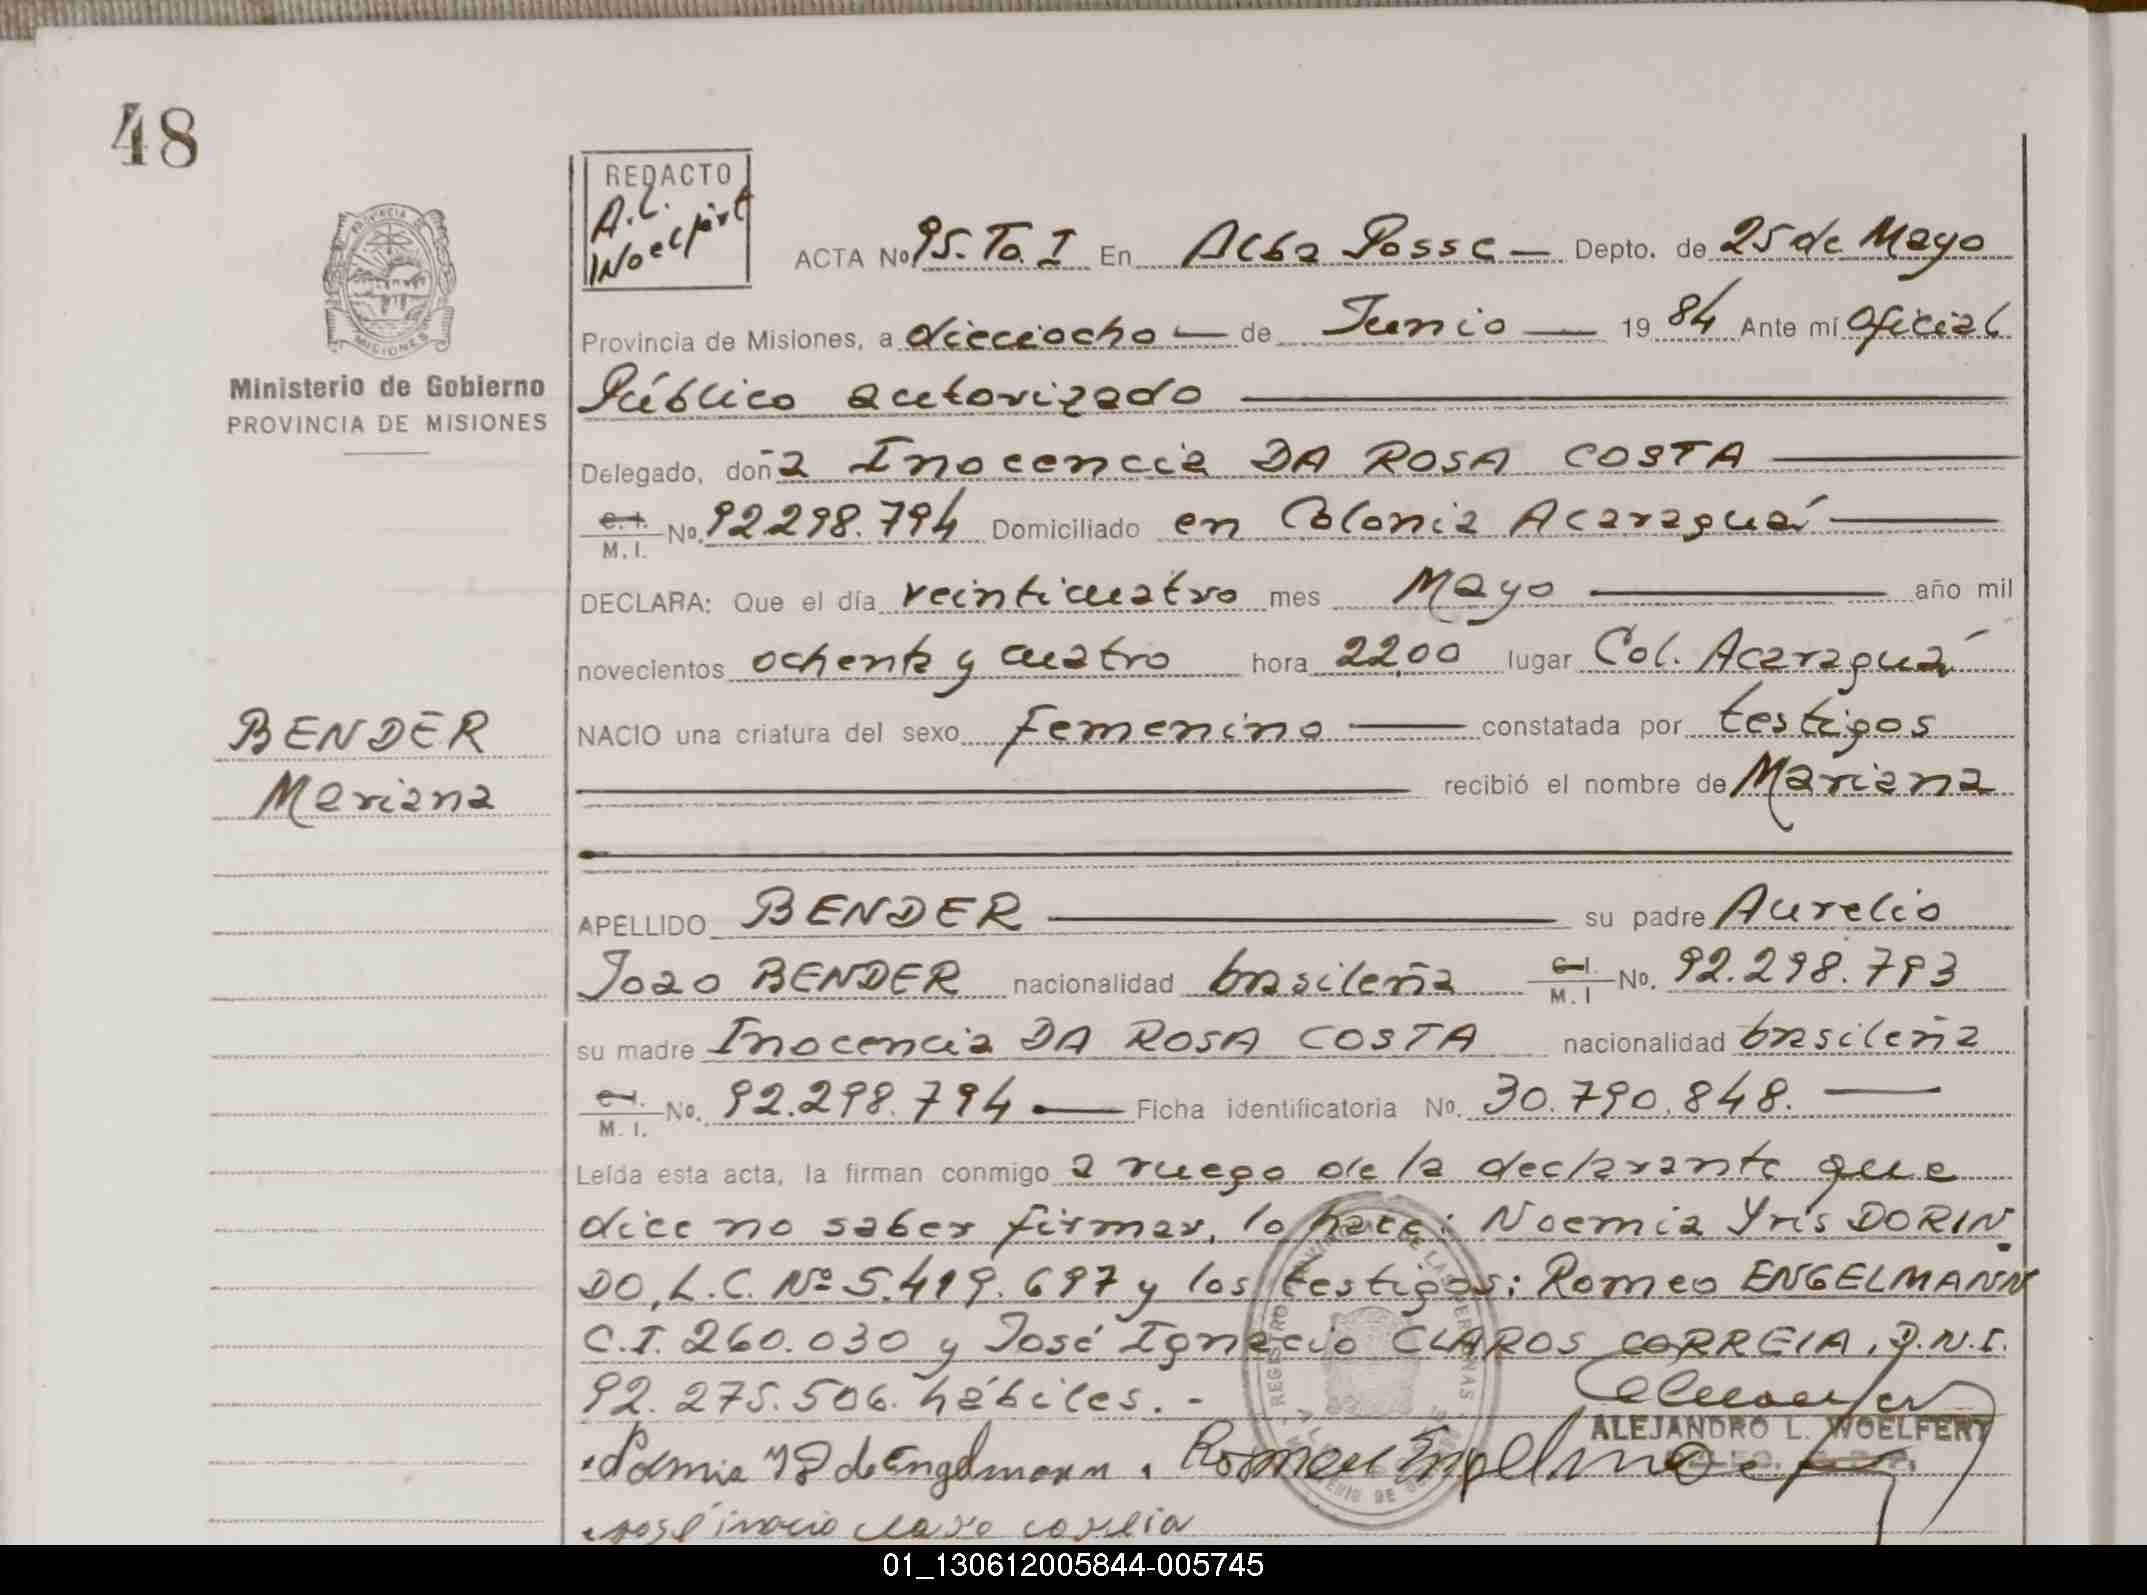 48
REDACTO
A.L.
Woelfert
ACTA Nº 95. Tº. I En Alba Posse — Depto. de 25 de Mayo
Provincia de Misiones, a dieciocho — de Junio — 1984 Ante mí Oficial
Público autorizado
PROVINCIA
MISIONES
Ministerio de Gobierno
PROVINCIA DE MISIONES
Delegado, doña Inocencia DA ROSA COSTA
C.I. M.I. No. 92298.794 Domiciliado en Colonia Acaraguá
DECLARA: Que el día veinticuatro mes Mayo — año mil
novecientos ochenta y cuatro hora 22,00 lugar Col. Acaraguá
BENDER
Mariana
NACIO una criatura del sexo femenino — constatada por testigos
recibió el nombre de Mariana
APELLIDO BENDER — su padre Aurelio
Joao BENDER nacionalidad brasileña C.I. M.I No. 92.298.793
su madre Inocencia DA ROSA COSTA nacionalidad brasileña
C.I. M.I. No. 92.298.794 — Ficha identificatoria No. 30.790.848. —
Leída esta acta, la firman conmigo a ruego de la declarante que
dice no saber firmar, lo hace: Noemia Yris DORIN
DO, L.C. Nº 5.419.697 y los testigos: Romeo ENGELMANN
C.I. 260.030 y José Ignacio CLAROS CORREIA, D.N.I.
92.275.506. hábiles. -
ALEJANDRO L. WOELFERT
de Engelmann. Romeu Engelmann
01_130612005844-005745